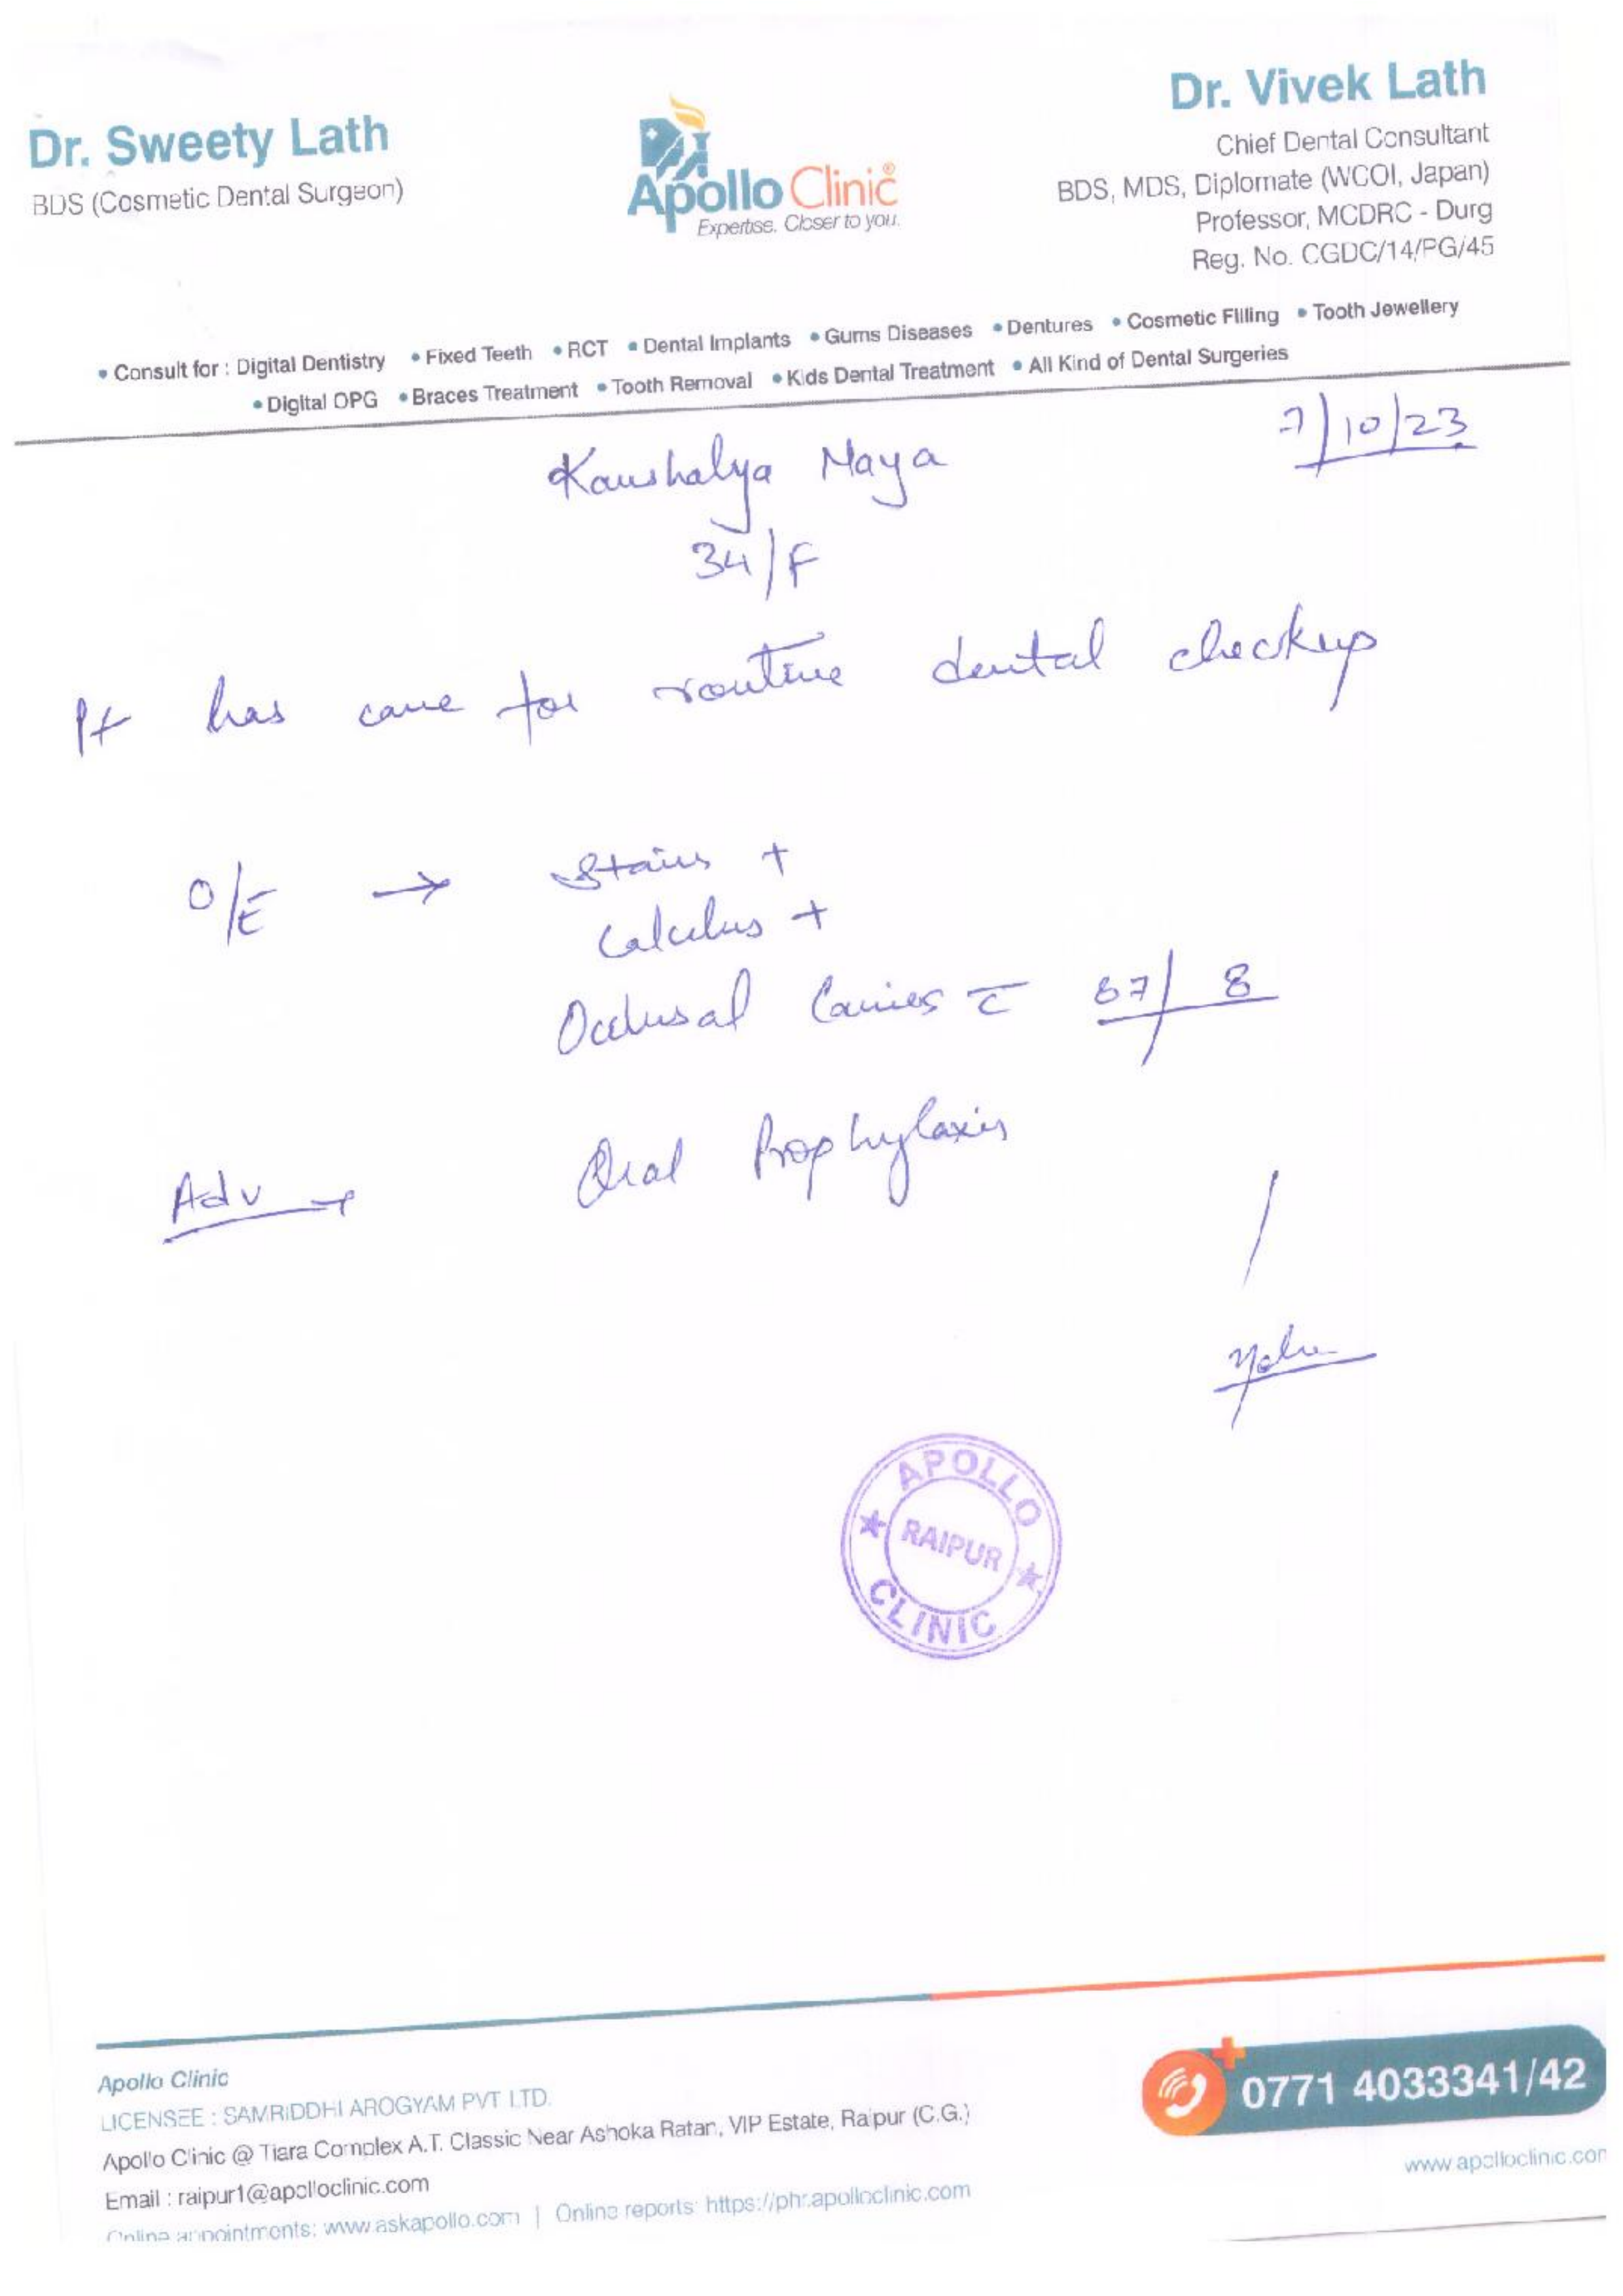 Dr. Sweety Lath
BDS (Cosmetic Dental Surgeon)
Apollo Clinic
Expertise. Closer to you.
Dr. Vivek Lath
Chief Dental Consultant
BDS, MDS, Diplomate (WCOI, Japan)
Professor, MCDRC - Durg
Reg. No. CGDC/14/PG/45
• Consult for : Digital Dentistry • Fixed Teeth • RCT • Dental Implants • Gums Diseases • Dentures • Cosmetic Filling • Tooth Jewellery
• Digital OPG • Braces Treatment • Tooth Removal • Kids Dental Treatment • All Kind of Dental Surgeries
7/10/23
Kaushalya Maya
34/F
Pt has came for routine dental checkup
O/E → Stains +
Calculus +
Occlusal Caries c̄ 87/ 8
Adv → Oral Prophylaxis
APOLLO
RAIPUR
CLINIC
Apollo Clinic
LICENSEE : SAMRIDDHI AROGYAM PVT LTD.
Apollo Clinic @ Tiara Complex A.T. Classic Near Ashoka Ratan, VIP Estate, Raipur (C.G.)
Email : raipur1@apolloclinic.com
Online appointments: www.askapollo.com | Online reports: https://phr.apolloclinic.com
0771 4033341/42
www.apolloclinic.com